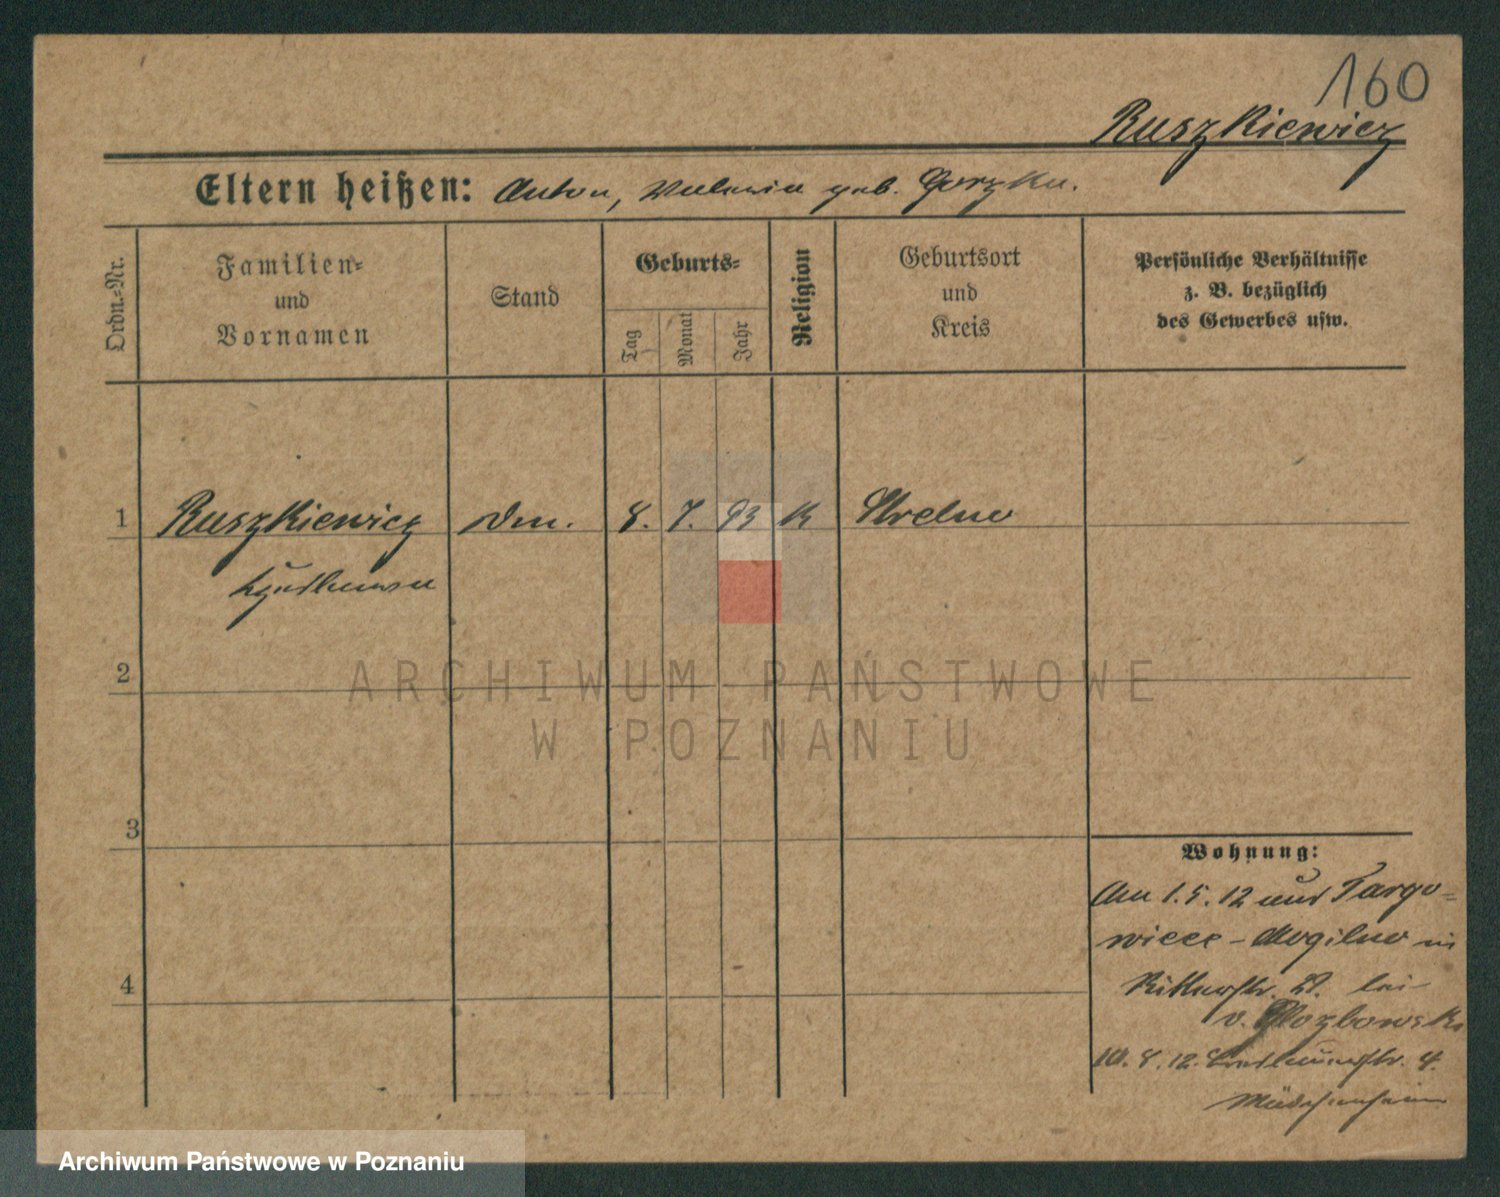 160
Ruszkiewicz
Eltern heißen: Anton, geb. Gorzka.
Ordn.-Nr.
Familien-
und
Vornamen
Stand
Geburts-
Tag
Monat
Jahr
Religion
Geburtsort
und
Kreis
Persönliche Verhältnisse
z. B. bezüglich
des Gewerbes usw.
1 Ruszkiewicz 8. 7. 93 K Strelno
2
3
4
Wohnung:
Am 1.5.12 aus Targo-
wiece - Mogilno in
Ritterstr. bei
v.
10. 8. 12. 4.
Mädchenheim
ARCHIWUM PAŃSTWOWE
W POZNANIU
Archiwum Państwowe w Poznaniu